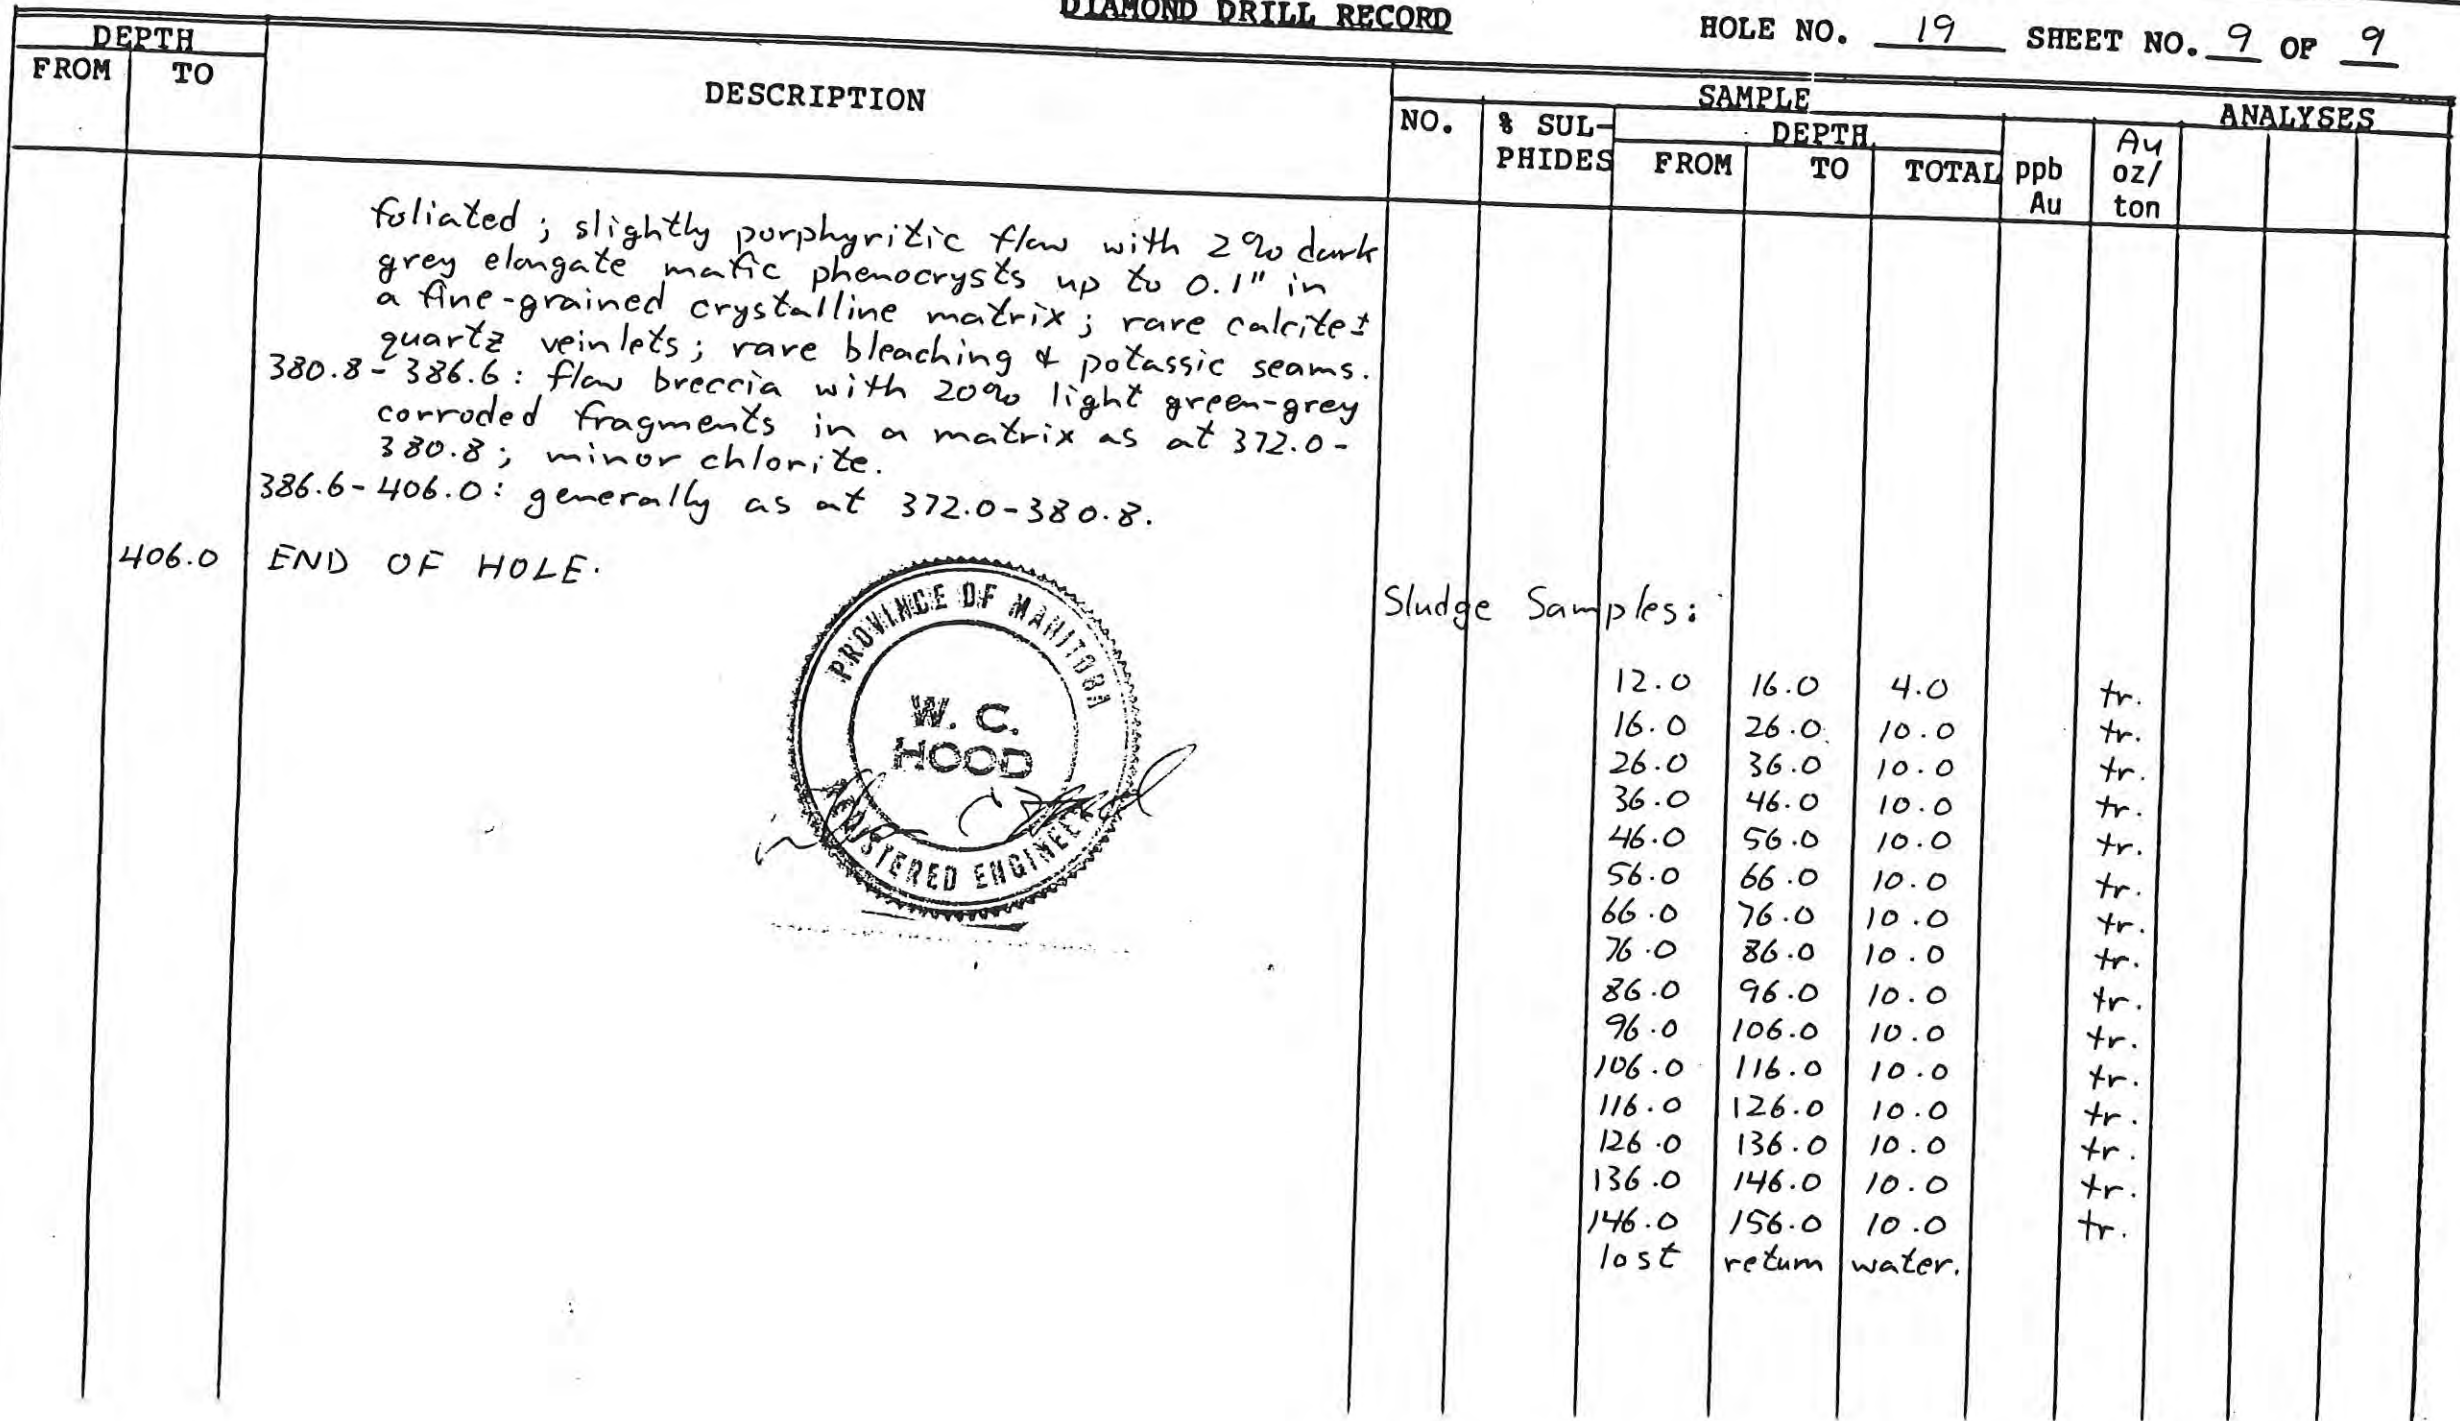 DIAMOND DRILL RECORD
HOLE NO. 19 SHEET NO. 9 OF 9
DEPTH
FROM TO
DESCRIPTION
SAMPLE
ANALYSES
NO.
% SUL-
PHIDES
DEPTH
FROM TO TOTAL
ppb
Au
Au
oz/
ton
foliated; slightly porphyritic flow with 2% dark
grey elongate mafic phenocrysts up to 0.1" in
a fine-grained crystalline matrix; rare calcite±
quartz veinlets; rare bleaching & potassic seams.
380.8-386.6: flow breccia with 20% light green-grey
corroded fragments in a matrix as at 372.0-
380.8; minor chlorite.
386.6-406.0: generally as at 372.0-380.8.
406.0 END OF HOLE.
PROVINCE OF MANITOBA
W. C.
HOOD
REGISTERED ENGINEER
Sludge Samples:
12.0 16.0 4.0 tr.
16.0 26.0 10.0 tr.
26.0 36.0 10.0 tr.
36.0 46.0 10.0 tr.
46.0 56.0 10.0 tr.
56.0 66.0 10.0 tr.
66.0 76.0 10.0 tr.
76.0 86.0 10.0 tr.
86.0 96.0 10.0 tr.
96.0 106.0 10.0 tr.
106.0 116.0 10.0 tr.
116.0 126.0 10.0 tr.
126.0 136.0 10.0 tr.
136.0 146.0 10.0 tr.
146.0 156.0 10.0 tr.
lost return water.